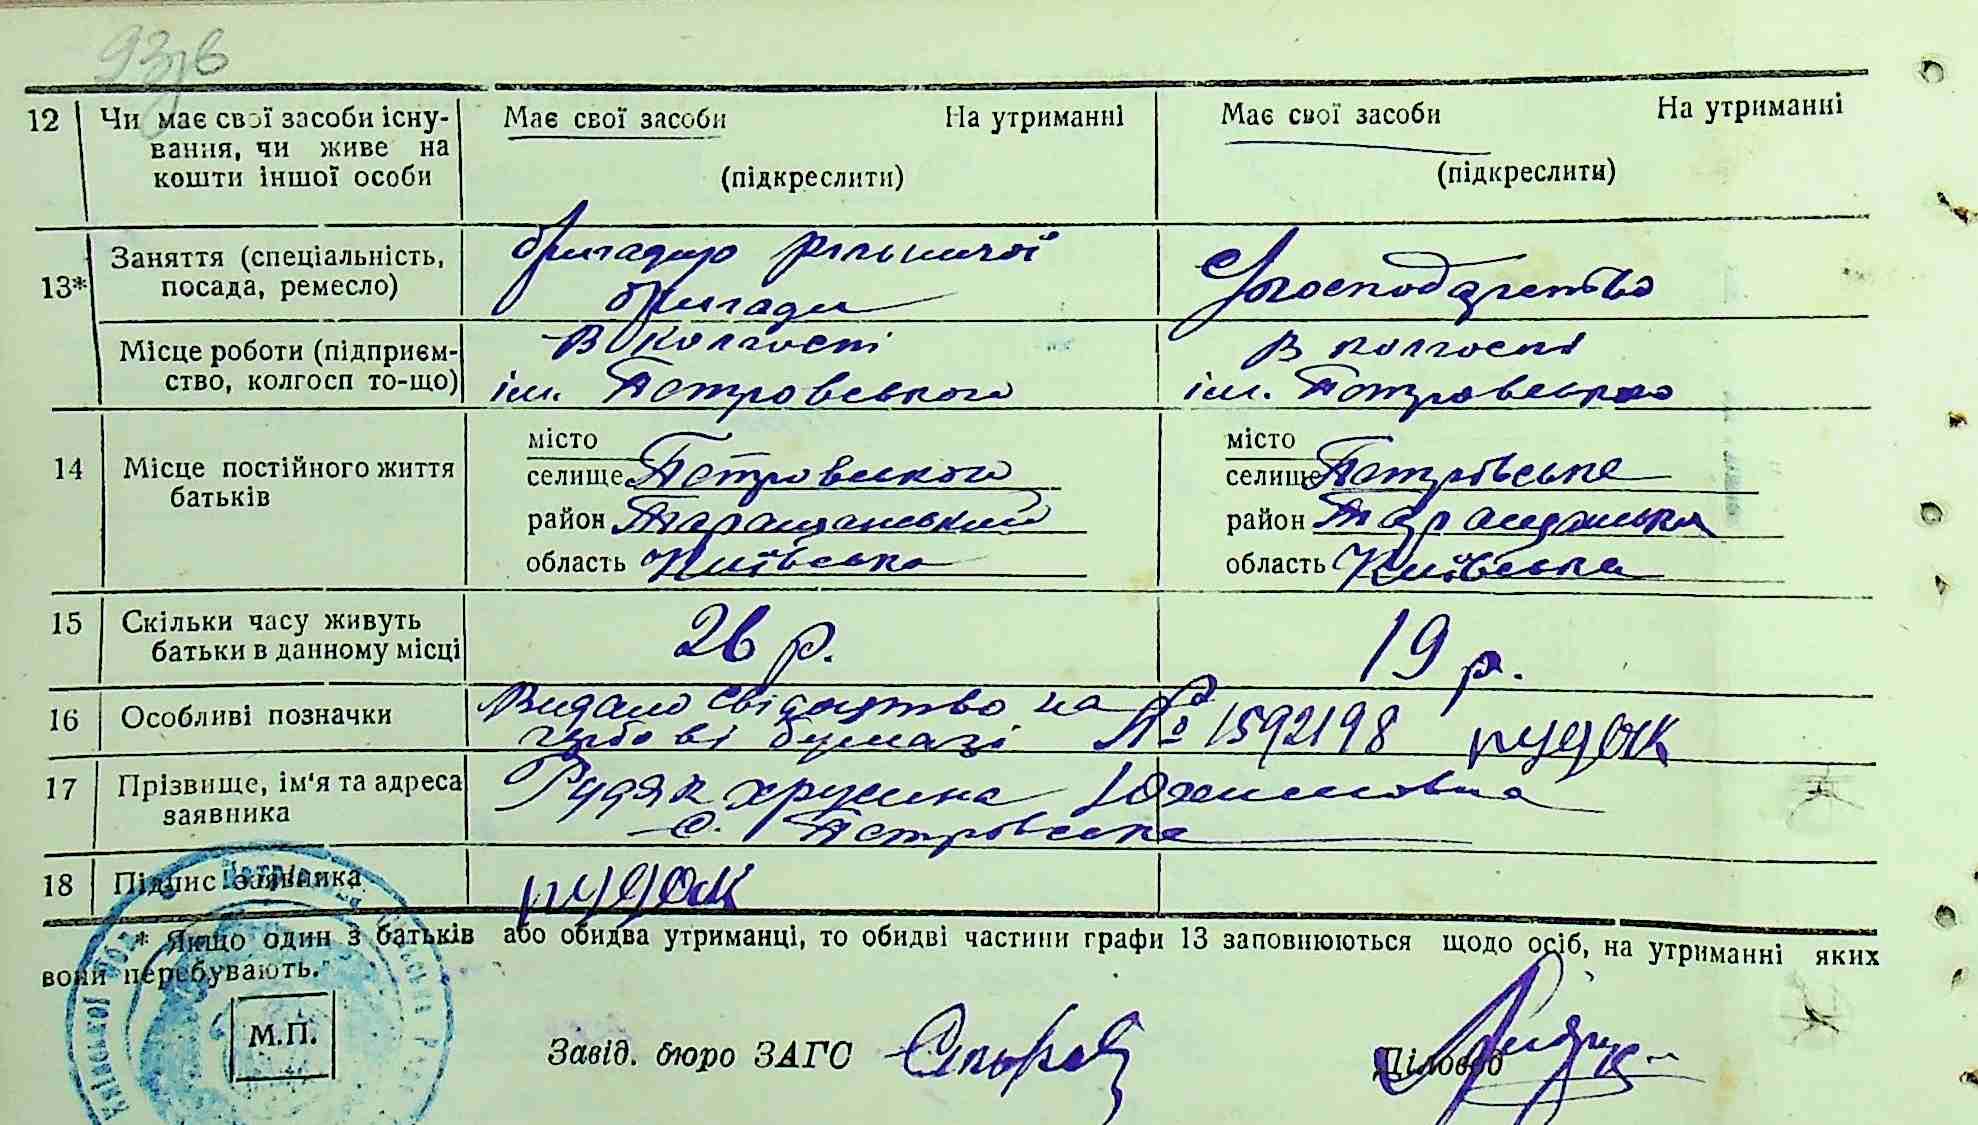 93зв
12 Чи має свої засоби існу- Має свої засоби На утриманні Має свої засоби На утриманні
вання, чи живе на
кошти іншої особи (підкреслити) (підкреслити)
13* Заняття (спеціальність, бригадир рільничої
посада, ремесло) бригади С/господарство
Місце роботи (підприєм- В колгоспі В колгоспі
ство, колгосп то-що) ім. Петровського ім. Петровського
місто місто
14 Місце постійного життя селище Петровского селище Петрівське
батьків район Таращанський район Таращанська
область Київська область Київська
15 Скільки часу живуть 26 р. 19 р.
батьки в данному місці
16 Особливі позначки Видано свідоцтво на
гербові бумазі № 1592198 рудяк
17 Прізвище, ім'я та адреса Рудяк Юхимовна
заявника с. Петрівська
18 Підпис заявника рудяк
* Якщо один з батьків або обидва утриманці, то обидві частини графи 13 заповнюються щодо осіб, на утриманні яких
вони перебувають.
М.П.
Завід. бюро ЗАГС Діловод
Київської